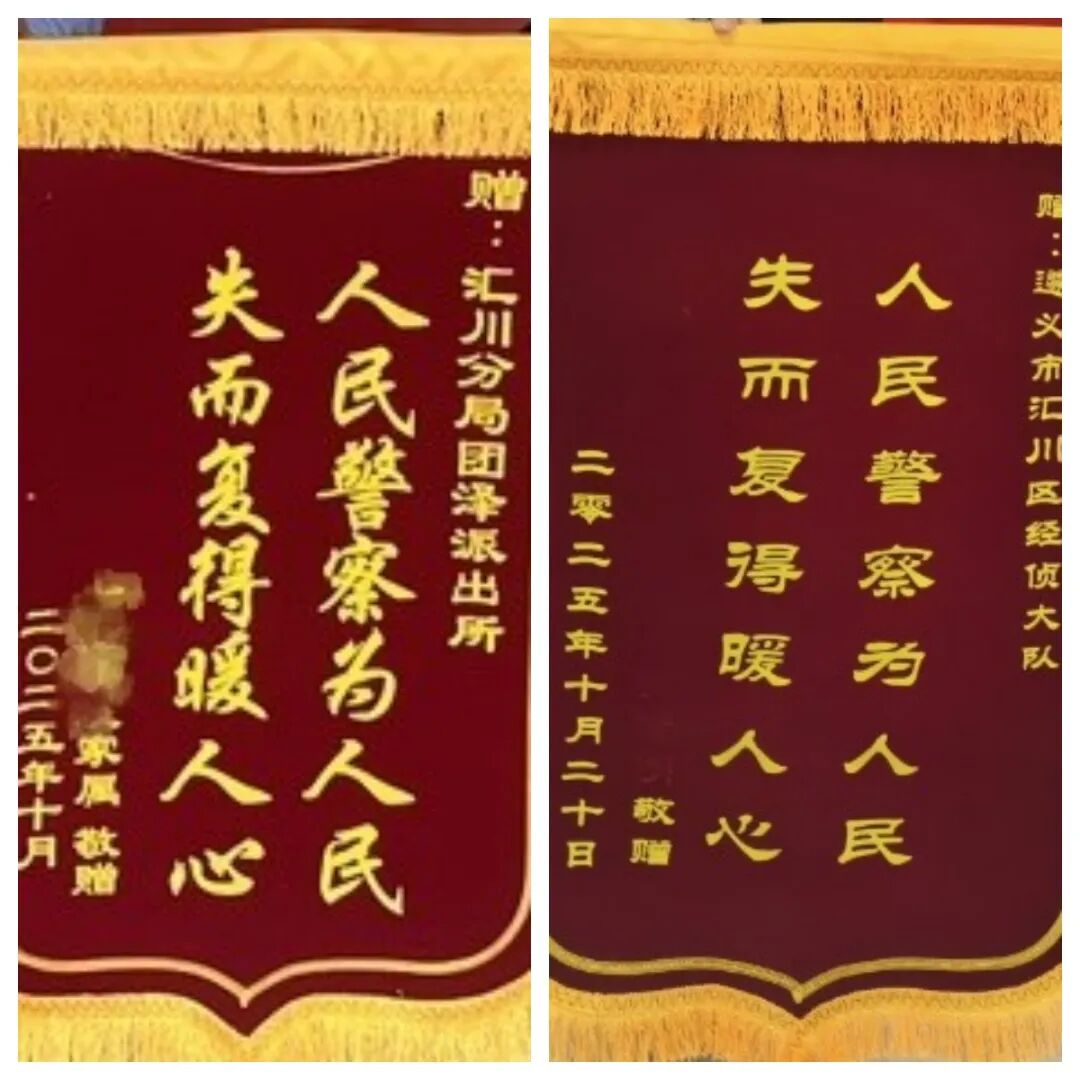 赠：汇川分局团泽派出所
人民警察为人民
失而复得暖人心
家属 敬赠
二〇二五年十月
赠：遵义市汇川区经侦大队
人民警察为人民
失而复得暖人心
敬赠
二零二五年十月二十日